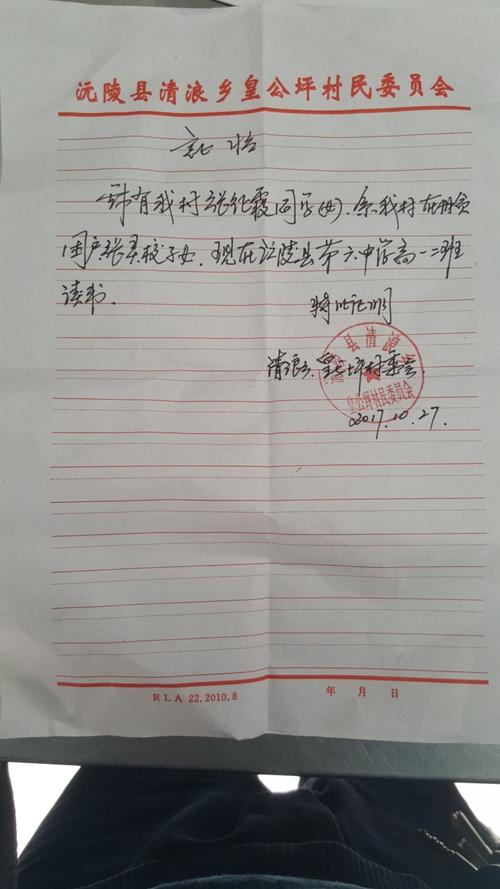 沅陵县清浪乡皇公坪村民委员会
证明
兹有我村张红霞同学(女).系我村在册贫
困户张吴校子女.现在沅陵县第六中学高一二班
读书.
特此证明
清浪乡皇公坪村委会.
皇公坪村民委员会
2017.10.27.
RLA 22.2010.8
年 月 日